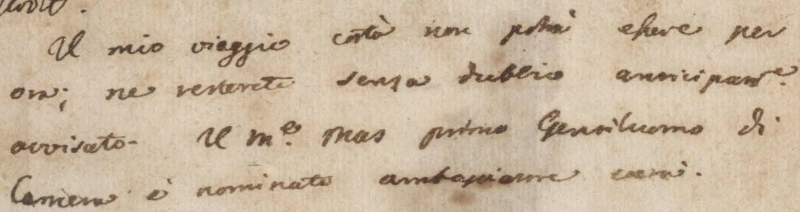 Il mio viaggio costà non potrà essere per
ora; ne resterete senza dubbio anticipam.e
avvisato. Il M.e Mas primo Gentiluomo di
Camera è nominato